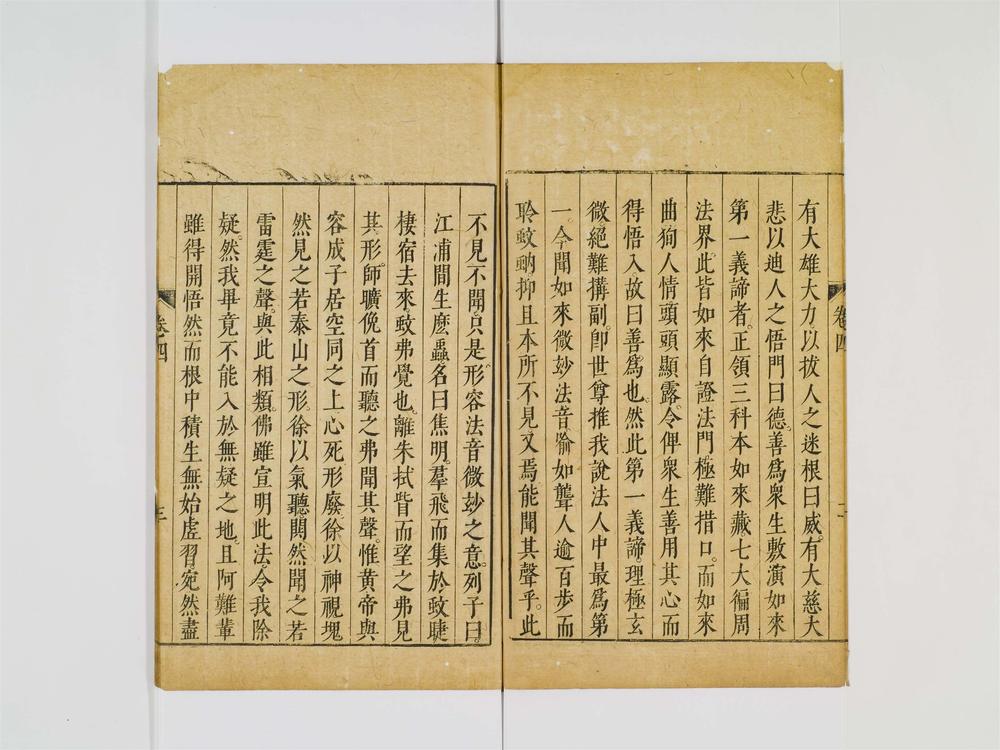 有大雄大力以拔人之迷根曰威有大慈大
悲以迪人之悟門曰德善爲衆生敷演如來
第一義諦者正領三科本如來藏七大徧周
法界此皆如來自證法門極難措口而如來
曲狥人情頭頭顯露令俾衆生善用其心而
得悟入故曰善爲也然此第一義諦理極玄
微絕難搆副卽世尊推我說法人中最爲第
一今聞如來微妙法音喻如聾人逾百步而
聆蚊蚋抑且本所不見又焉能聞其聲乎此
卷四
不見不聞只是形容法音微妙之意列子曰
江浦間生麽蟲名曰焦明羣飛而集於蚊睫
棲宿去來蚊弗覺也離朱拭眥而望之弗見
其形師曠俛首而聽之弗聞其聲惟黃帝與
容成子居空同之上心死形廢徐以神視塊
然見之若泰山之形徐以氣聽閧然聞之若
雷霆之聲與此相類佛雖宣明此法令我除
疑然我畢竟不能入於無疑之地且阿難輩
雖得開悟然而根中積生無始虛習宛然盡
卷四